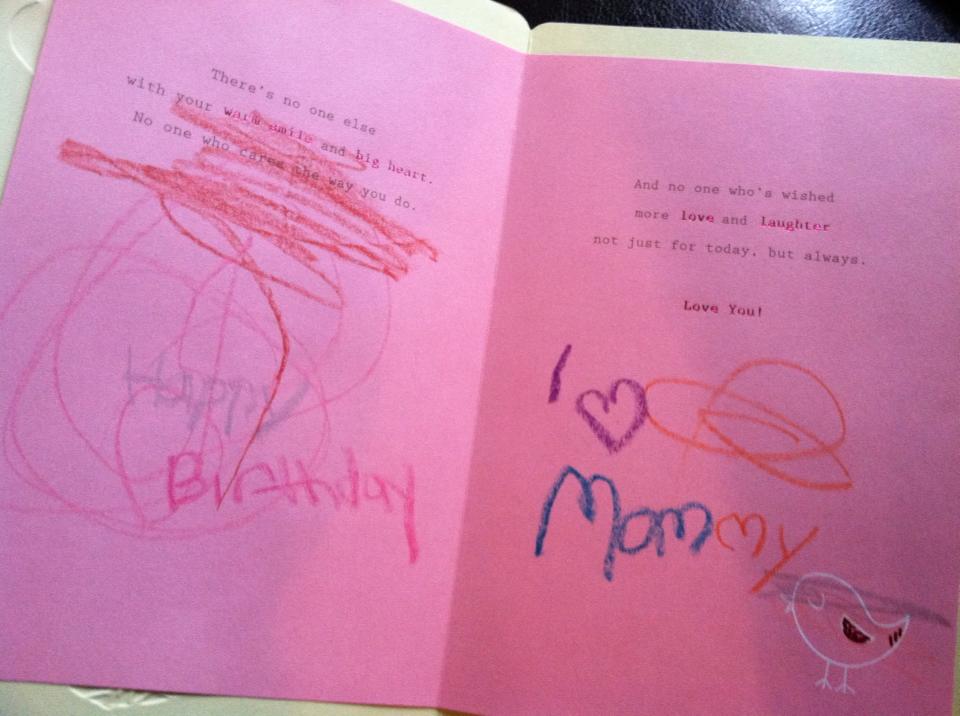 There's no one else
with your warm smile and big heart.
No one who cares the way you do.
Happy
Birthday
And no one who's wished
more love and laughter
not just for today, but always.
Love You!
I
Mommy